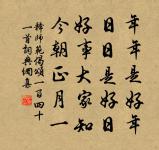 年年是好年
日日是好日
好事大家知
今朝正月一
釋師範偈頌一百四十
一首詞典網